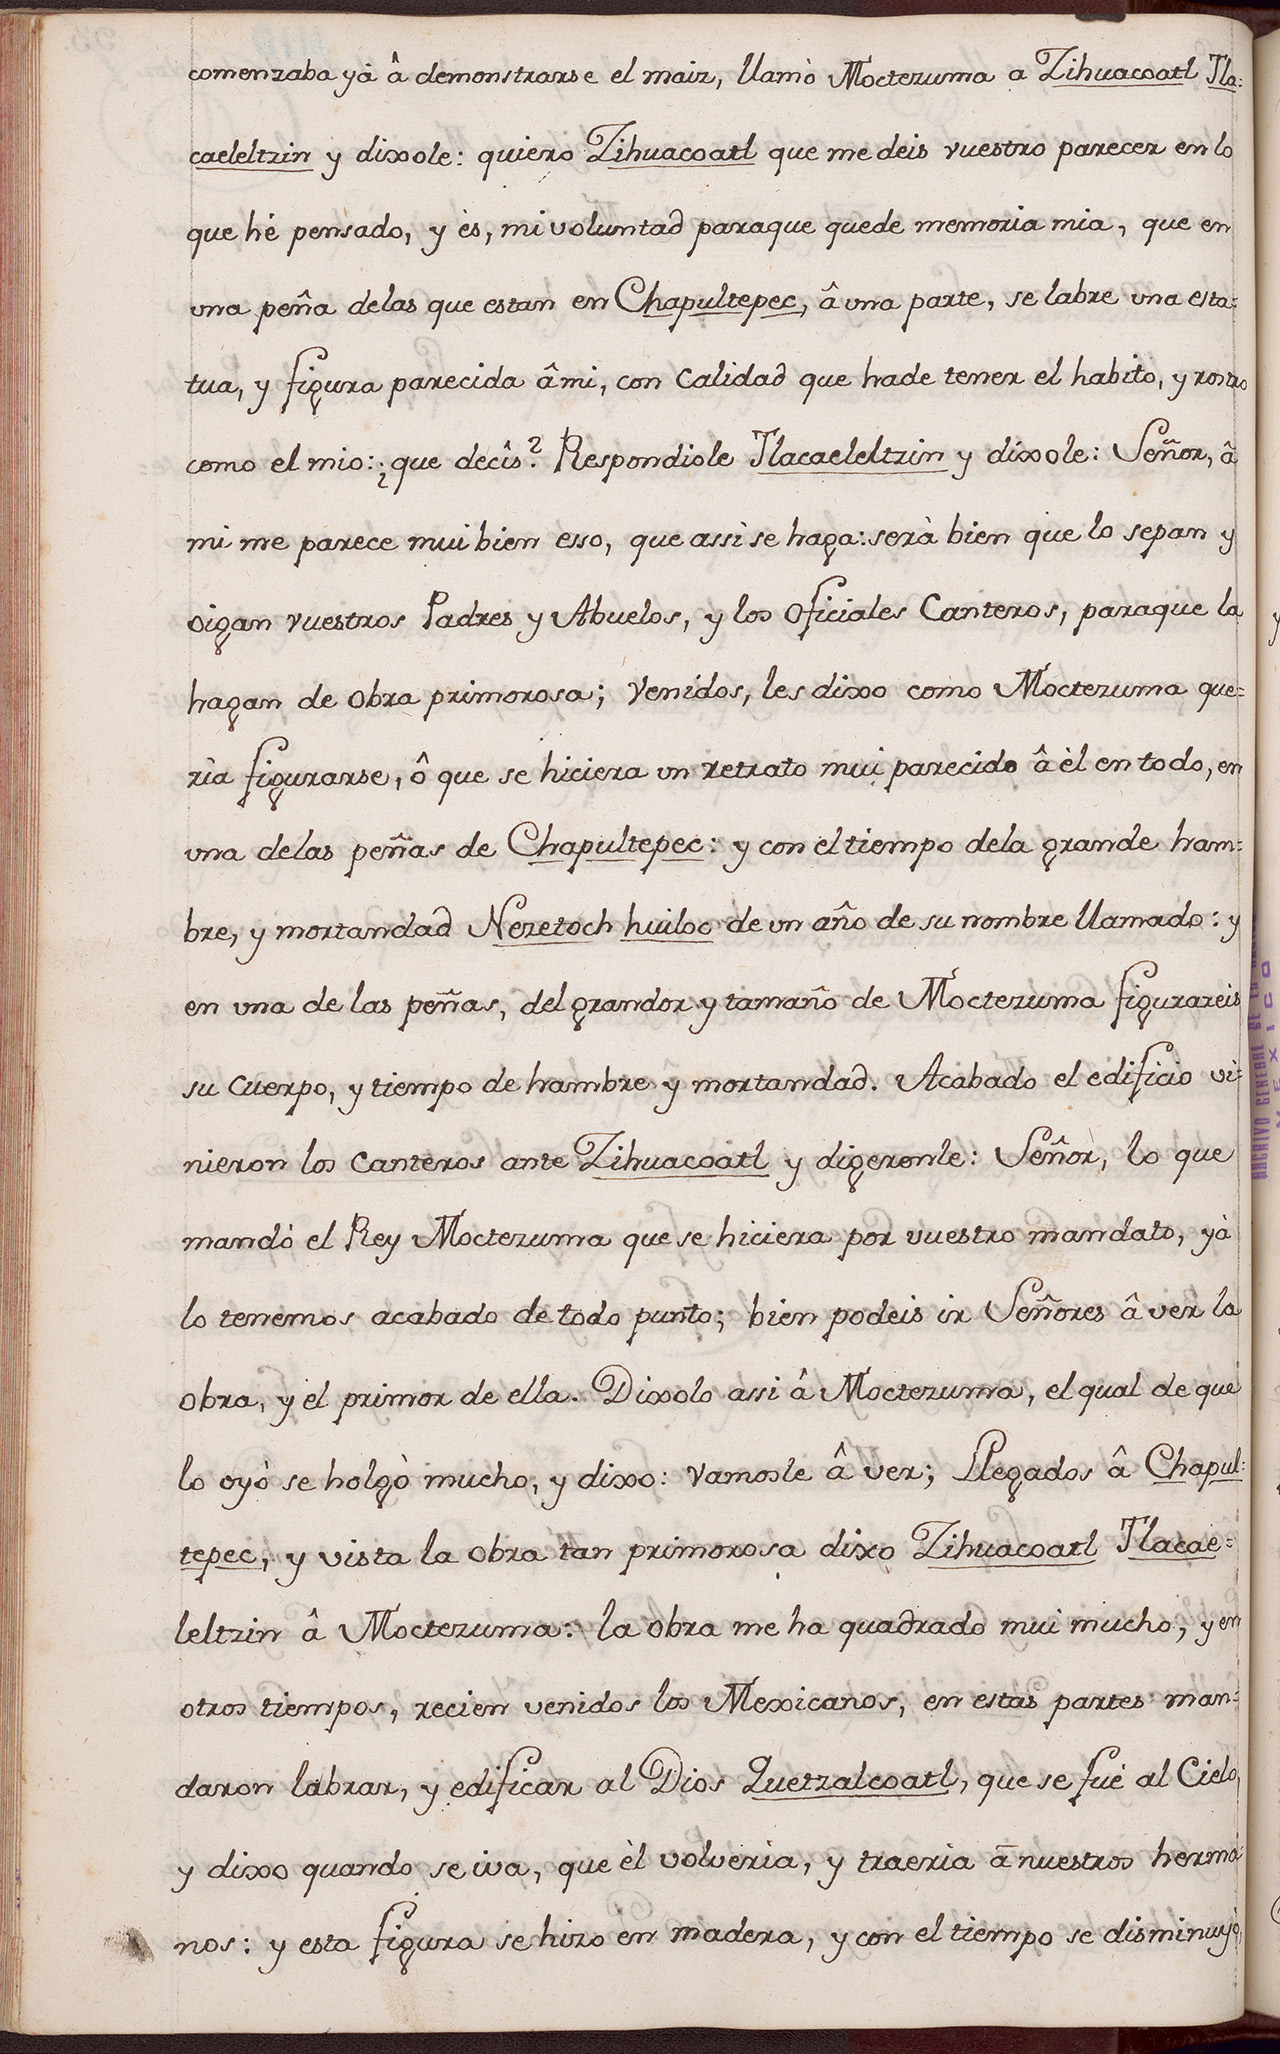 comenzaba yà â demonstrarse el maiz, llamò Moctezuma a Zihuacoatl Tla=
caeleltzin y dixole: quiero Zihuacoatl que me deis vuestro parecer en lo
que hé pensado, y ès, mi voluntad paraque quede memoria mia, que en
una peña delas que estan en Chapultepec, â una parte, se labre una esta=
tua, y figura parecida â mi, con calidad que hade tener el habito, y rostro
como el mio: ¿que decîs? Respondiole Tlacaeleltzin y dixole: Señor, â
mi me parece mui bien esso, que assi se haga: serà bien que lo sepan y
oigan vuestros Padres y Abuelos, y los Oficiales Canteros, paraque la
hagan de obra primorosa; Venidos, les dixo como Moctezuma que=
rìa figurarse, ô que se hiciera un retrato mui parecido â èl en todo, en
una delas peñas de Chapultepec: y con el tiempo dela grande ham=
bre, y mortandad Nezetoch huiloc de un año de su nombre llamado: y
en una de las peñas, del grandor y tamaño de Moctezuma figurareis
su cuerpo, y tiempo de hambre y mortandad. Acabado el edificio vi=
nieron los canteros ante Zihuacoatl y digeronle: Señor, lo que
mandò el Rey Moctezuma que se hiciera por vuestro mandato, yà
lo tenemos acabado de todo punto; bien podeis ir Señores â ver la
obra, y el primor de ella. Dixolo assi â Moctezuma, el qual de que
lo oyò se holgò mucho, y dixo: vamosle â ver; Llegados â Chapul=
tepec, y vista la obra tan primorosa dixo Zihuacoatl Tlacae=
leltzin â Moctezuma: la obra me ha quadrado mui mucho, y en
otros tiempos, recien venidos los Mexicanos, en estas partes man=
daron labrar, y edificar al Dios Quetzalcoatl, que se fuè al Cielo,
y dixo quando se iva, que èl volveria, y traeria â nuestros herma
nos: y esta figura se hizo en madera, y con el tiempo se disminuyò,
ARCHIVO GENERAL DE LA
MEXICO